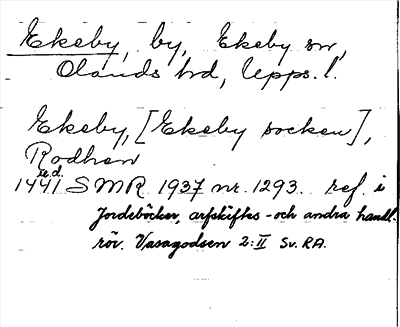 Ekeby, by, Ekeby sn,
Olands hd, Upps. l.
Ekeby, [Ekeby socken],
Rodhen
u.d.
1441 SMR 1937 nr. 1293. ref. i
Jordeböcker, arfskiftes - och andra handl.
rör. Vasagodsen 2:II Sv. RA.